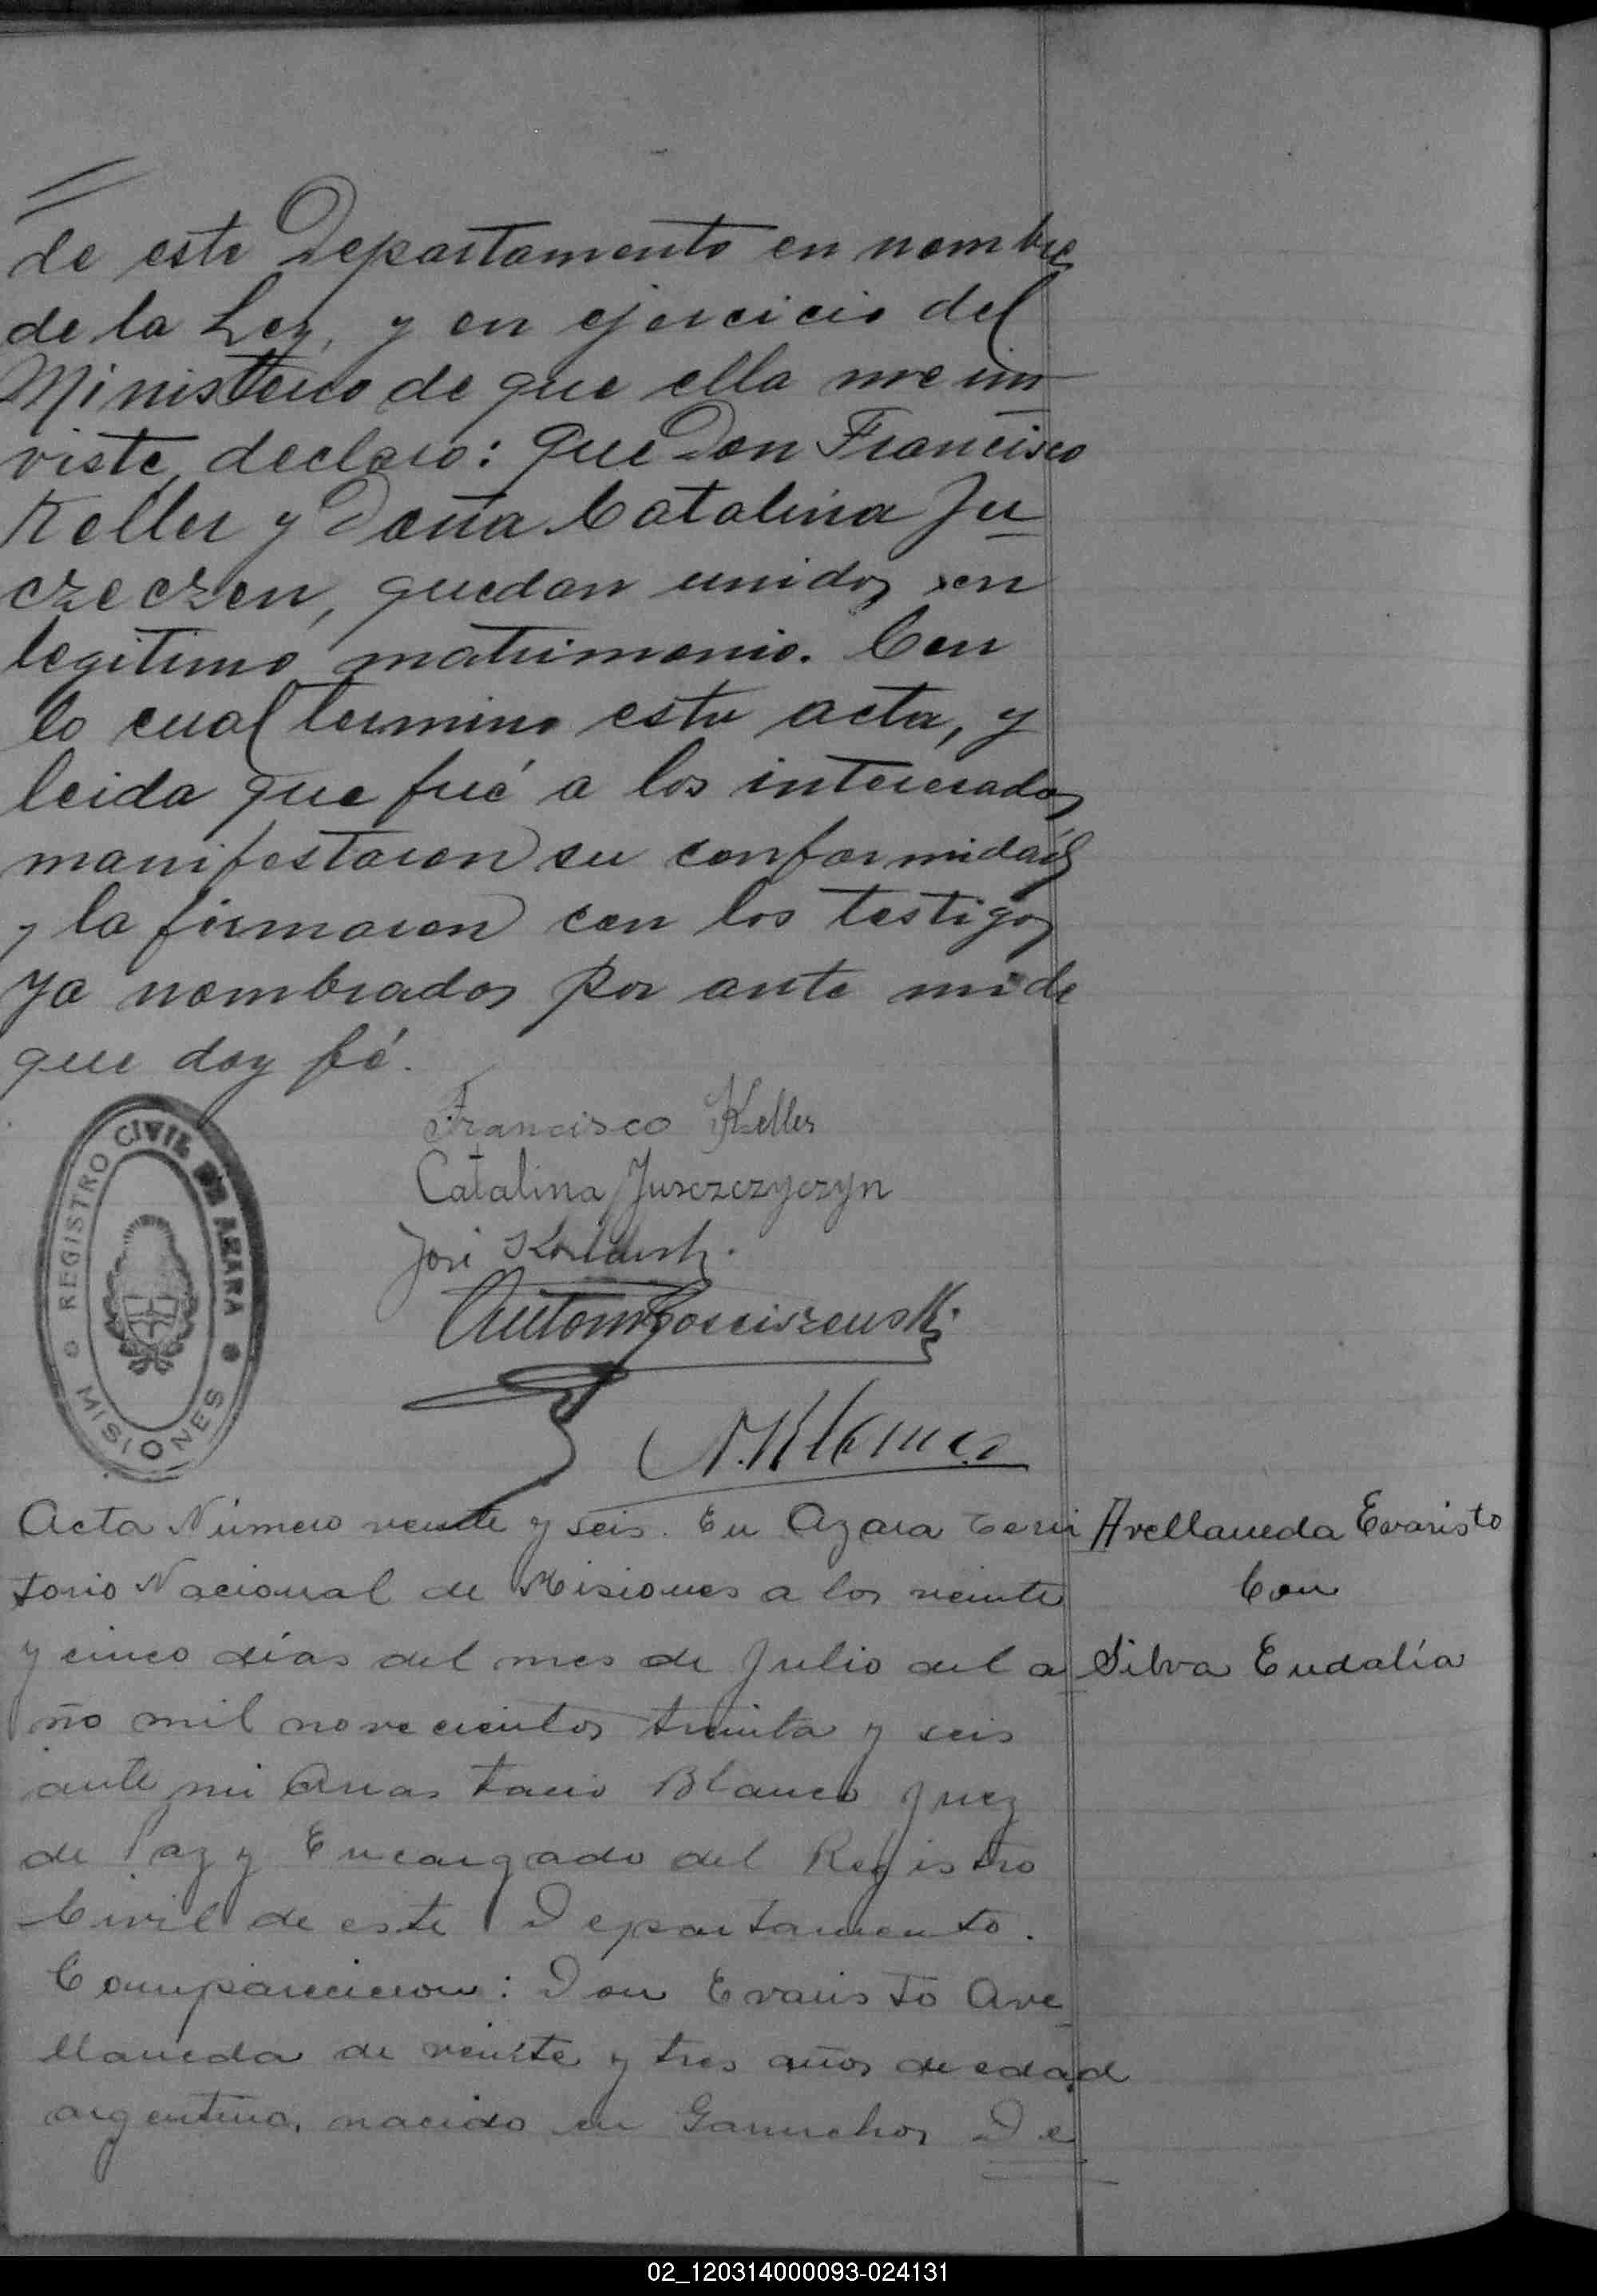 de este Departamento en nombre
de la Ley, y en ejercicio del
Ministerio de que ella me in
viste, declaro: Que Don Francisco
Keller y Doña Catalina Ju
czeczen, quedan unidos en
legitimo matrimonio. Con
lo cual termino esta acta, y
leida que fué a los interesados
manifestaron su conformidad
y la firmaron con los testigos
ya nombrados por ante mi de
que doy fé.
REGISTRO CIVIL DE AZARA
MISIONES
Francisco Keller
Catalina Jurczczyczyn
José
Acta Número veinte y seis. En Azara Terri
torio Nacional de Misiones a los veinte
y cinco días del mes de Julio del a
ño mil novecientos treinta y seis
ante mi Anastacio Blanco Juez
de Paz y Encargado del Registro
Civil de este Departamento.
Comparecieron: Don Evaristo Ave
llaneda de veinte y tres años de edad
argentino, nacido en Garruchos De
Avellaneda Evaristo
Con
Silva Eudalía
02_120314000093-024131